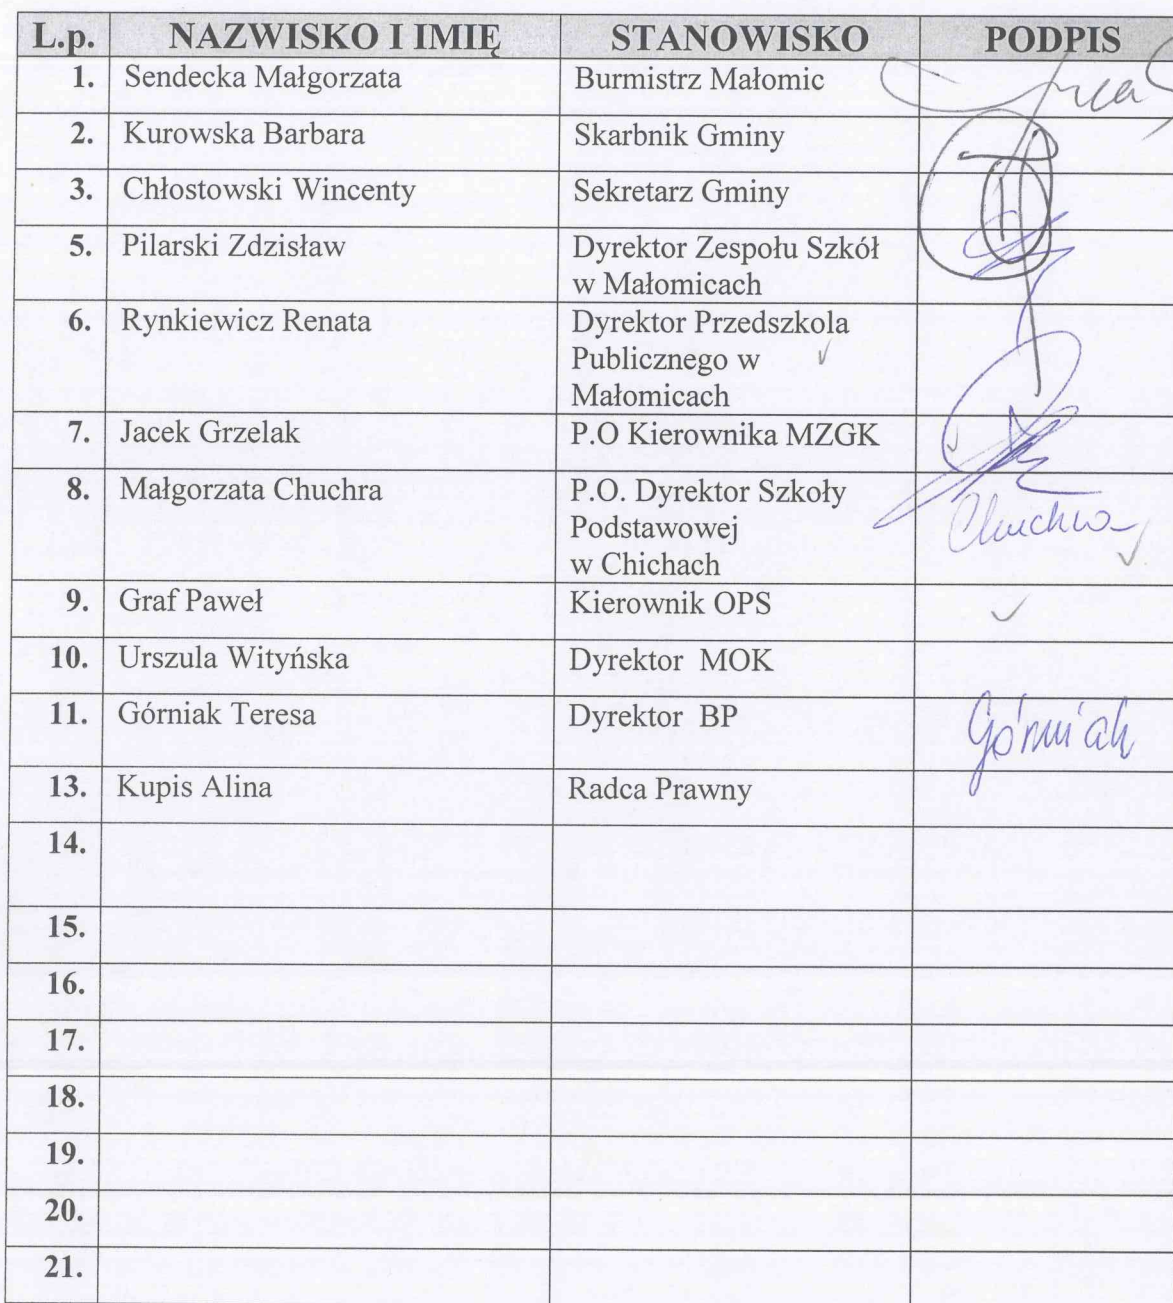 L.p. NAZWISKO I IMIĘ STANOWISKO PODPIS
1. Sendecka Małgorzata Burmistrz Małomic
2. Kurowska Barbara Skarbnik Gminy
3. Chłostowski Wincenty Sekretarz Gminy
5. Pilarski Zdzisław Dyrektor Zespołu Szkół
w Małomicach
6. Rynkiewicz Renata Dyrektor Przedszkola
Publicznego w
Małomicach
7. Jacek Grzelak P.O Kierownika MZGK
8. Małgorzata Chuchra P.O. Dyrektor Szkoły
Podstawowej Chuchra
w Chichach
9. Graf Paweł Kierownik OPS
10. Urszula Wityńska Dyrektor MOK
11. Górniak Teresa Dyrektor BP Górniak
13. Kupis Alina Radca Prawny
14.
15.
16.
17.
18.
19.
20.
21.